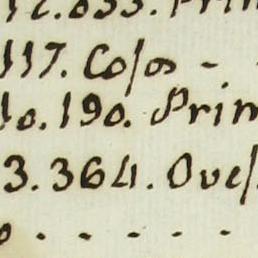 12.033. Prin
117. Coſos -
10.190. Prim
3.364. Oveſ
o . - - - - -